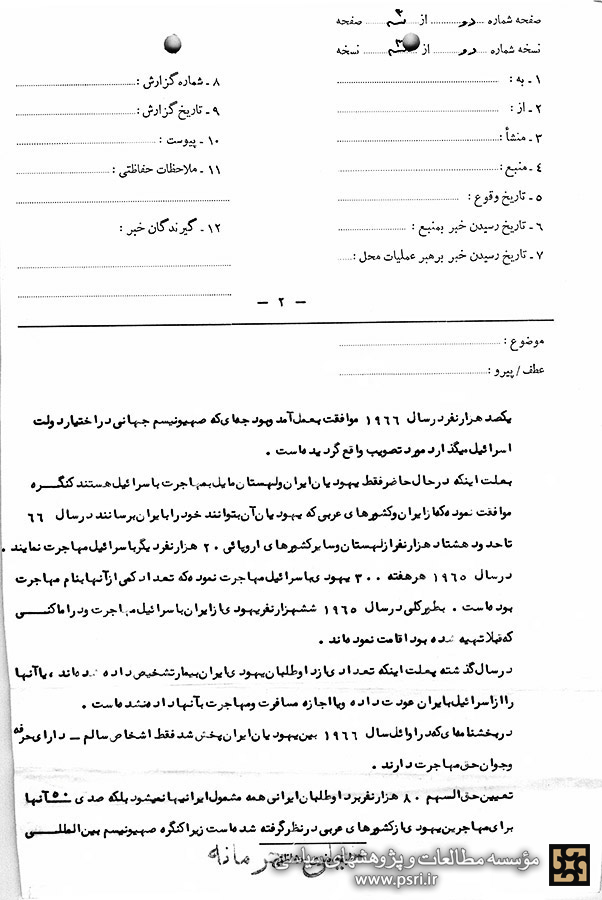 صفحه شماره دو از سه صفحه
نسخه شماره دو از سه نسخه
۱ - به :
۲ - از :
۳ - منشأ :
۴ - منبع :
۵ - تاریخ وقوع :
۶ - تاریخ رسیدن خبر بمنبع :
۷ - تاریخ رسیدن خبر برهبر عملیات محل :
۸ - شماره گزارش :
۹ - تاریخ گزارش :
۱۰ - پیوست :
۱۱ - ملاحظات حفاظتی :
۱۲ - گیرندگان خبر :
- ۲ -
موضوع :
عطف / پیرو :
یکصد هزار نفر در سال ۱۹۶۶ موافقت بعمل آمد و بودجه‌ای که صهیونیسم جهانی در اختیار دولت
اسرائیل میگذارد مورد تصویب واقع گردیده است .
بعلت اینکه در حال حاضر فقط یهودیان ایران و لهستان مایل بمهاجرت باسرائیل هستند کنگره
موافقت نموده که از ایران و کشورهای عربی که یهودیان آن بتوانند خود را بایران برسانند در سال ۶۶
تا حدود هشتاد هزار نفر از لهستان و سایر کشورهای اروپائی ۲۰ هزار نفر دیگر باسرائیل مهاجرت نمایند .
در سال ۱۹۶۵ هر هفته ۳۰۰ یهودی باسرائیل مهاجرت نموده که تعداد کمی از آنها بنام مهاجرت
بوده است . بطور کلی در سال ۱۹۶۵ ششهزار نفر یهودی از ایران باسرائیل مهاجرت و در اماکنی
که قبلا تهیه شده بود اقامت نموده‌اند .
در سال گذشته بعلت اینکه تعدادی از داوطلبان یهودی ایران بیمار تشخیص داده شده‌اند ، یا آنها
را از اسرائیل بایران عودت داده و یا اجازه مسافرت و مهاجرت بآنها داده نشده است .
در بخشنامه‌ای که در اوائل سال ۱۹۶۶ بین یهودیان ایران پخش شد فقط اشخاص سالم - دارای حرفه
و جوان حق مهاجرت دارند .
تعیین حق السهم ۸۰ هزار نفر داوطلبان ایرانی همه مشمول ایرانیها نمیشود بلکه صدی ۵۰ آنها
برای مهاجرین یهودی از کشورهای عربی در نظر گرفته شده است زیرا کنگره صهیونیسم بین المللی
خیلی محرمانه
مؤسسه مطالعات و پژوهشهای سیاسی
www.psri.ir